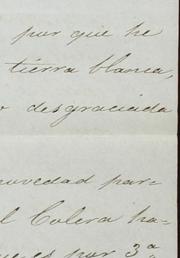 por que he
tierra blanca,
desgraciada
novedad par=
l Colera ha=
es por 3ª